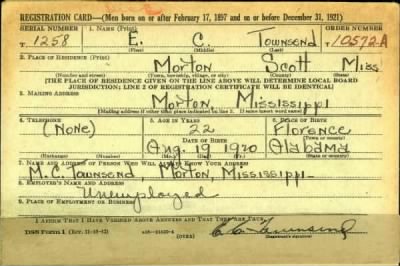 REGISTRATION CARD—(Men born on or after February 17, 1897 and on or before December 31, 1921)
SERIAL NUMBER 1. NAME (Print) ORDER NUMBER
T. 1258 E. C. Townsend 10572-A
(First) (Middle) (Last)
2. PLACE OF RESIDENCE (Print)
Morton Scott Miss
(Number and street) (Town, township, village, or city) (County) (State)
[THE PLACE OF RESIDENCE GIVEN ON THE LINE ABOVE WILL DETERMINE LOCAL BOARD
JURISDICTION; LINE 2 OF REGISTRATION CERTIFICATE WILL BE IDENTICAL]
3. MAILING ADDRESS
Morton Mississippi
[Mailing address if other than place indicated on line 2. If same insert word same]
4. TELEPHONE 5. AGE IN YEARS 6. PLACE OF BIRTH
(None) 22 Florence
DATE OF BIRTH (Town or county)
Aug. 19 1920 Alabama
(Exchange) (Number) (Mo.) (Day) (Yr.) (State or country)
7. NAME AND ADDRESS OF PERSON WHO WILL ALWAYS KNOW YOUR ADDRESS
M. C. Townsend Morton, Mississippi
8. EMPLOYER'S NAME AND ADDRESS
Unemployed
9. PLACE OF EMPLOYMENT OR BUSINESS
I AFFIRM THAT I HAVE VERIFIED ABOVE ANSWERS AND THAT THEY ARE TRUE.
DSS Form 1 (over) E. C. Townsend